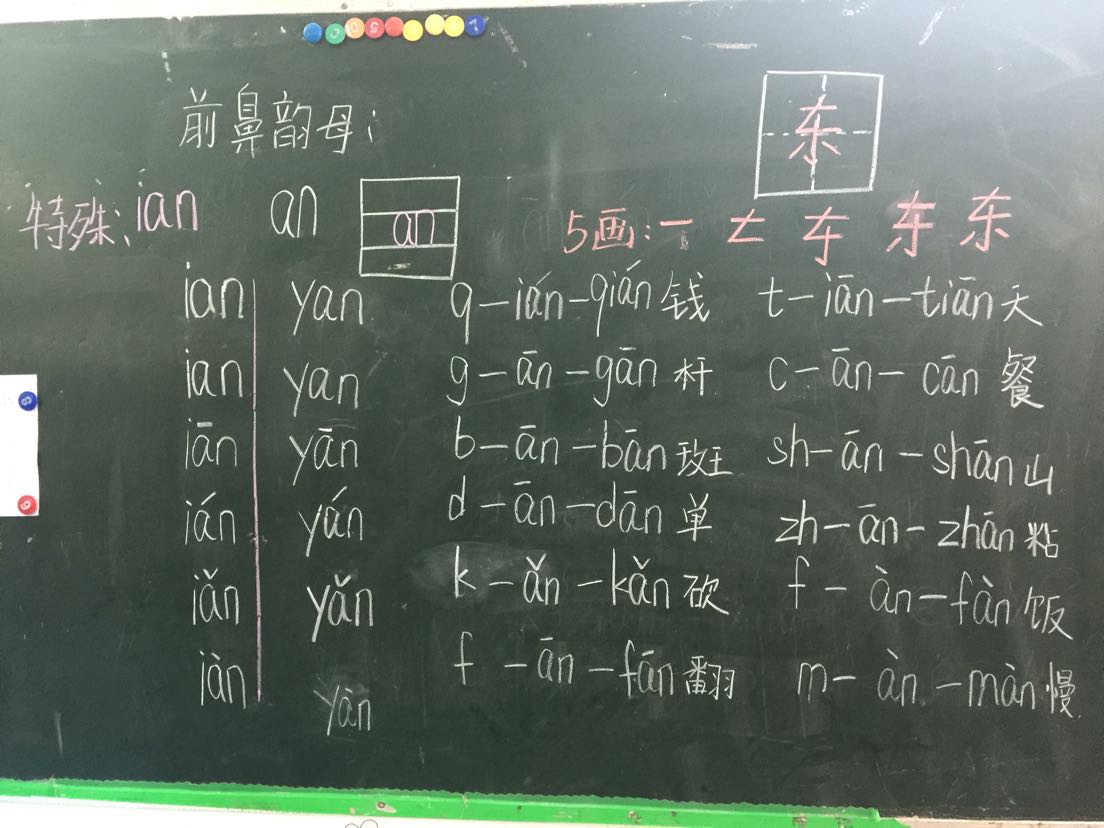 前鼻韵母:
东
特殊: ian an an 5画: 一 𠂇 车 东 东
ian yan q-ián-qián 钱 t-iān-tiān 天
ian yan g-ān-gān 杆 c-ān-cān 餐
iān yān b-ān-bān 斑 sh-ān-shān 山
ián yán d-ān-dān 单 zh-ān-zhān 粘
iǎn yǎn k-ǎn-kǎn 砍 f-àn-fàn 饭
iàn yàn f-ān-fān 翻 m-àn-màn 慢